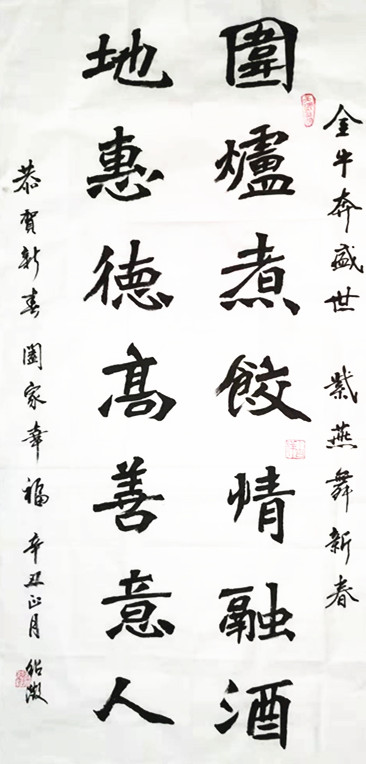 金牛奔盛世 紫燕舞新春
圍爐煮餃情融酒
地惠德高善意人
恭賀新春 闔家幸福 辛丑正月 绍激